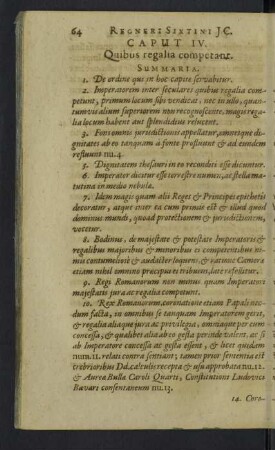 64 REGNERI SIXTINI JC.
CAPUT IV.
Quibus regalia competant.
SUMMARIA.
1. De ordine qui in hoc capite servabitur.
2. Imperatorem inter seculares quibus regalia com-
petunt, primum locum sibi vendicat, nec in ullo, quan-
tumvis alium superiorem non recognoscente, magis rega-
lia locum habent aut splendidius relucent.
3. Fons omnis jurisdictionis appellatur, omnesque di-
gnitates ab eo tanquam à fonte profluunt & ad eundem
refluunt nu. 4.
5. Dignitatem thesauri in eo reconditi esse dicuntur.
6. Imperator dicitur esse terrestre numen, ac stella ma-
tutina in medio nebula.
7. Idem magis quam alii Reges & Principes epithetis
decoratur, atque inter ea cum primis est & illud quod
dominus mundi, quoad protectionem & jurisdictionem,
vocetur.
8. Bodinus, de majestate & potestate Imperatoris &
regalibus majoribus & minoribus ei competentibus ni-
mis contumeliosè & audacter loquens, & ea
etiam nihil omnino præcipui ei tribuens, latè refellitur.
9. Regi Romanorum non minus quàm Imperatori
majestatis jura ac regalia competunt.
10. Rex Romanorum, coronatione etiam Papali non-
dum facta, in omnibus se tanquam Imperatorem gerit,
& regalia aliaque jura ac privilegia, omniaque per eum
concessa, & qualibet alia ab eo gesta perinde valent, ac si
ab Imperatore concessa ac gesta essent, & licet quidam
num. 11. relati contra sentiant; tamen prior sententia est
crebrioribus Dd. calculis recepta & usu approbata nu. 12.
& Aureæ Bullæ Caroli Quarti, Constitutioni Ludovici
Bavari consentanea nu. 13.
14. Chro-